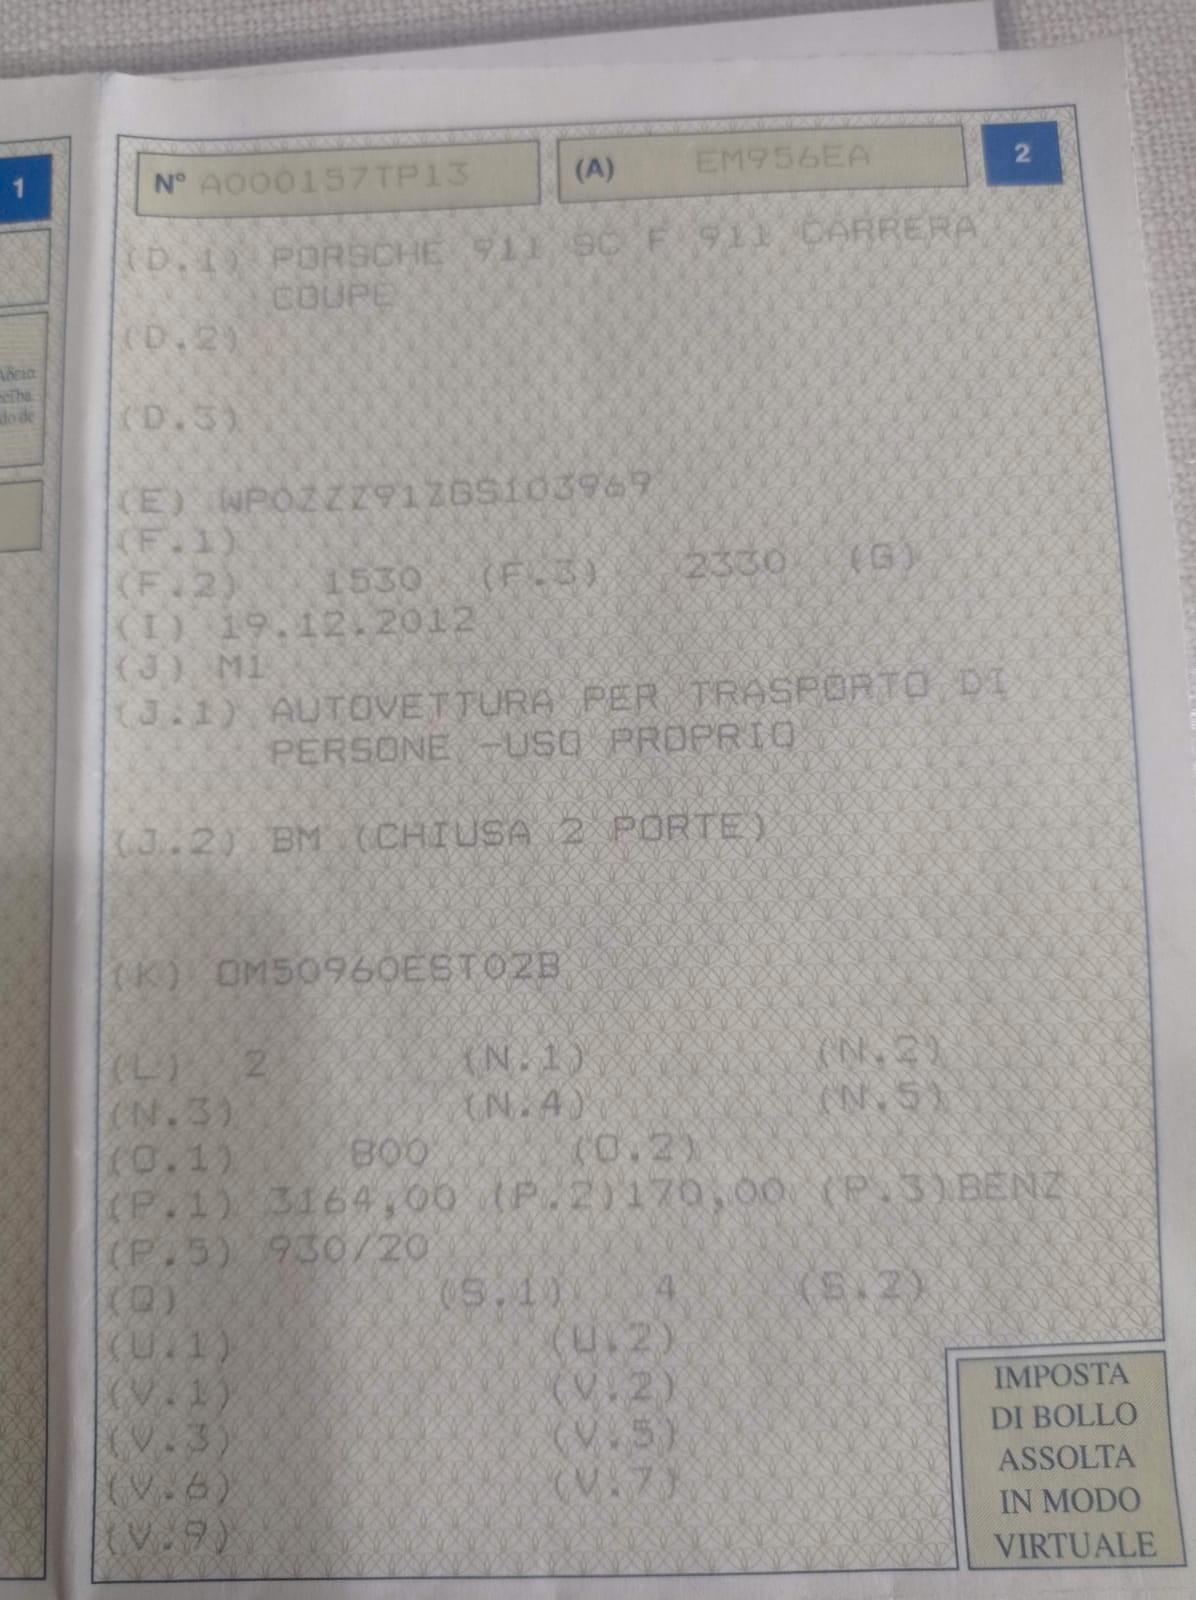 1
N° A000157TP13
(A) EM956EA
2
(D.1) PORSCHE 911 SC F 911 CARRERA
COUPE
(D.2)
(D.3)
(E) WP0ZZZ91ZGS103969
(F.1)
(F.2) 1530 (F.3) 2330 (G)
(I) 19.12.2012
(J) M1
(J.1) AUTOVETTURA PER TRASPORTO DI
PERSONE -USO PROPRIO
(J.2) BM (CHIUSA 2 PORTE)
(K) OM50960EST02B
(L) 2 (N.1) (N.2)
(N.3) (N.4) (N.5)
(O.1) 800 (O.2)
(P.1) 3164,00 (P.2)170,00 (P.3)BENZ
(P.5) 930/20
(Q) (S.1) 4 (S.2)
(U.1) (U.2)
(V.1) (V.2)
(V.3) (V.5)
(V.6) (V.7)
(V.9)
IMPOSTA
DI BOLLO
ASSOLTA
IN MODO
VIRTUALE